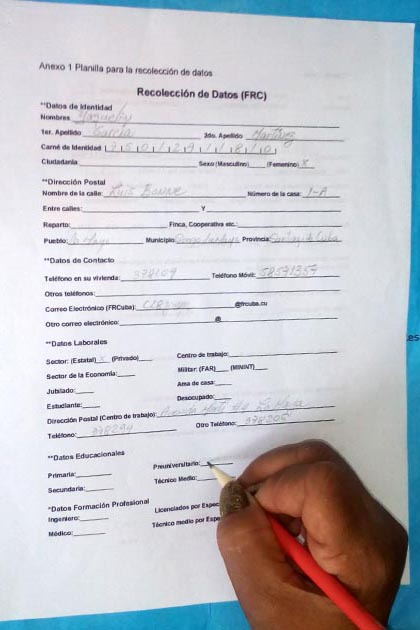 Anexo 1 Planilla para la recolección de datos
Recolección de Datos (FRC)
**Datos de Identidad
Nombres
1er. Apellido García 2do. Apellido Martínez
Carné de Identidad
Ciudadanía Sexo (Masculino) (Femenino) x
**Dirección Postal
Nombre de la calle: Número de la casa: 1-A
Entre calles: Y
Reparto: Finca, Cooperativa etc.:
Pueblo: La Maya Municipio: Songo La Maya Provincia: Santiago de Cuba
**Datos de Contacto
Teléfono en su vivienda: 378109 Teléfono Móvil:
Otros teléfonos:
Correo Electrónico (FRCuba): @frcuba.cu
Otro correo electrónico: @
**Datos Laborales
Sector: (Estatal) x (Privado) Centro de trabajo:
Sector de la Economía: Militar: (FAR) (MININT)
Jubilado: Ama de casa:
Estudiante: Desocupado:
Dirección Postal (Centro de trabajo): Avenida Martí La Maya
Teléfono: 378294 Otro Teléfono: 378205
**Datos Educacionales
Primaria: Preuniversitario:
Secundaria: Técnico Medio:
*Datos Formación Profesional
Ingeniero: Licenciados por Espec
Médico: Técnico medio por Espe